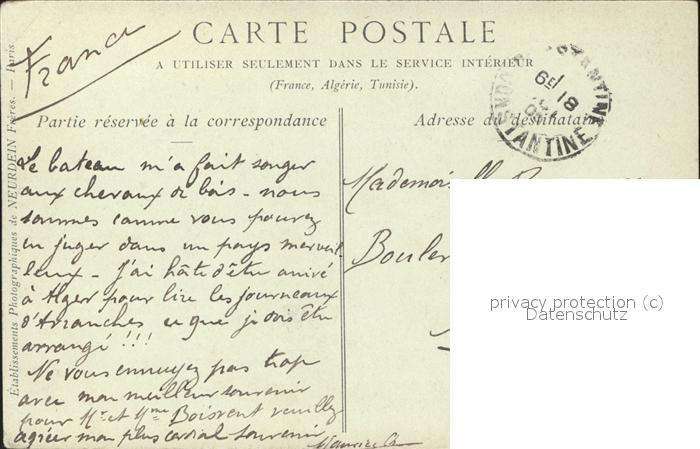 France
CARTE POSTALE
A UTILISER SEULEMENT DANS LE SERVICE INTÉRIEUR
(France, Algérie, Tunisie).
Partie réservée à la correspondance
Adresse du destinataire
CONSTANTINE
18
Le bateau m'a fait songer
aux chevaux de bois - nous
sommes comme vous pouvez
en juger dans un pays merveil
leux - J'ai hâte d'être arrivé
à Alger pour lire les journeaux
d'Avranches ce que je dois être
arrangé !!!
Ne vous ennuyez pas trop
avec mon meilleur souvenir
pour Mr et Mme Boisvent veuillez
agréer mon plus cordial souvenir
Maurice
Mademois
Bouler
Établissements Photographiques de NEURDEIN Frères. — Paris
privacy protection (c)
Datenschutz